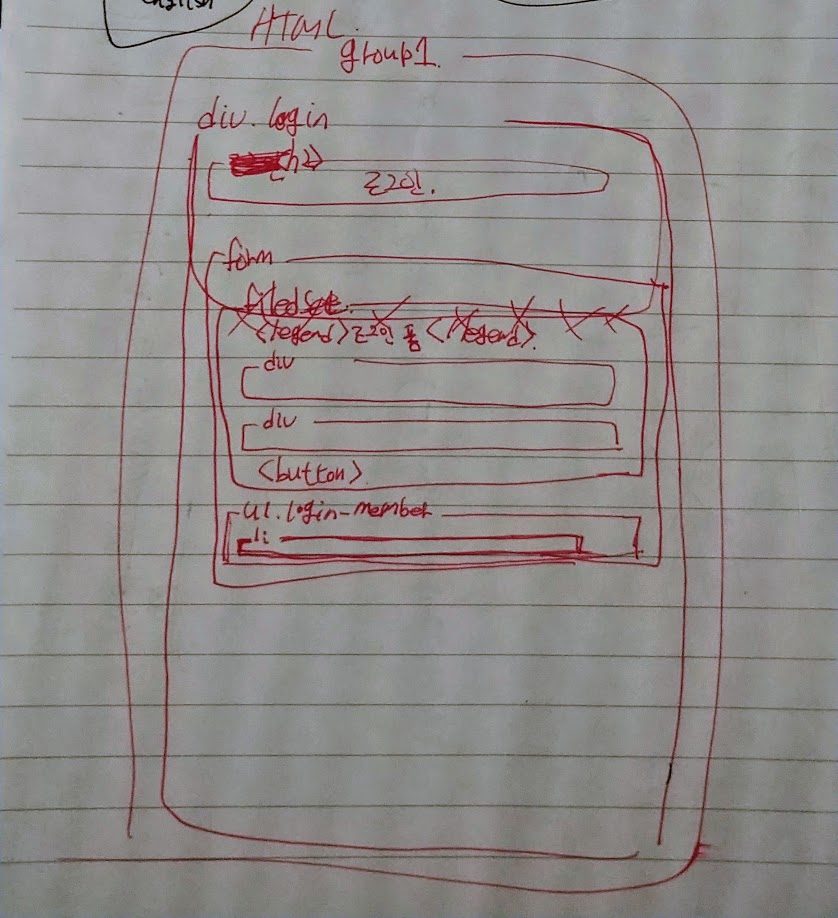 english
HTML.
group1.
div.login
<h2>
로그인.
form
filedset.
<legend>로그인 폼</legend>.
div
div
<button>
ul.login-member
li